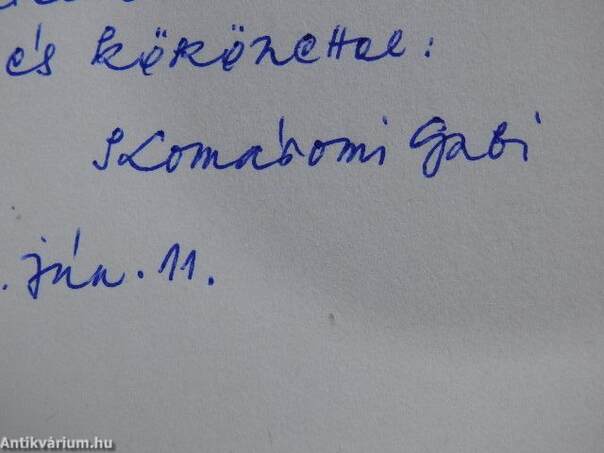 és köszönettel:
Komáromi Gabi
. jún. 11.
Antikvárium.hu